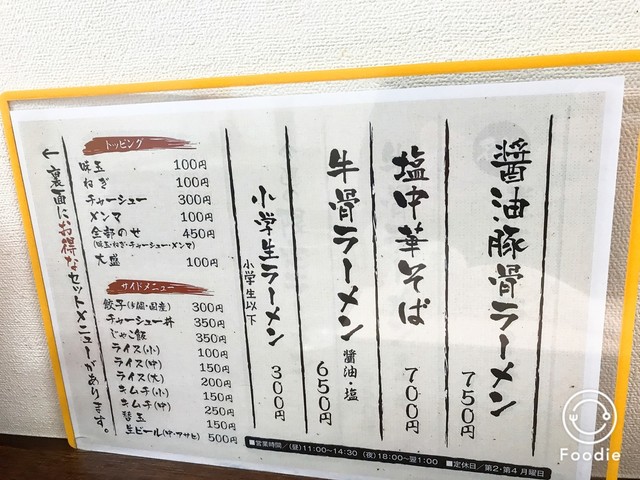 醤油豚骨ラーメン 750円
塩中華そば 700円
牛骨ラーメン 醤油・塩 650円
小学生ラーメン 小学生以下 300円
トッピング
味玉 100円
ねぎ 100円
チャーシュー 300円
メンマ 100円
全部のせ 450円
(味玉・ねぎ・チャーシュー・メンマ)
大盛 100円
サイドメニュー
餃子(5個・国産) 300円
チャーシュー丼 350円
じゃこ飯 350円
ライス(小) 100円
ライス(中) 150円
ライス(大) 200円
キムチ(小) 150円
キムチ(中) 250円
替玉 150円
生ビール(中・アサヒ) 500円
←裏面にお得なセットメニューがあります。
■営業時間/(昼)11:00~14:30 (夜)18:00~翌1:00 ■定休日/第2・第4 月曜日
Foodie